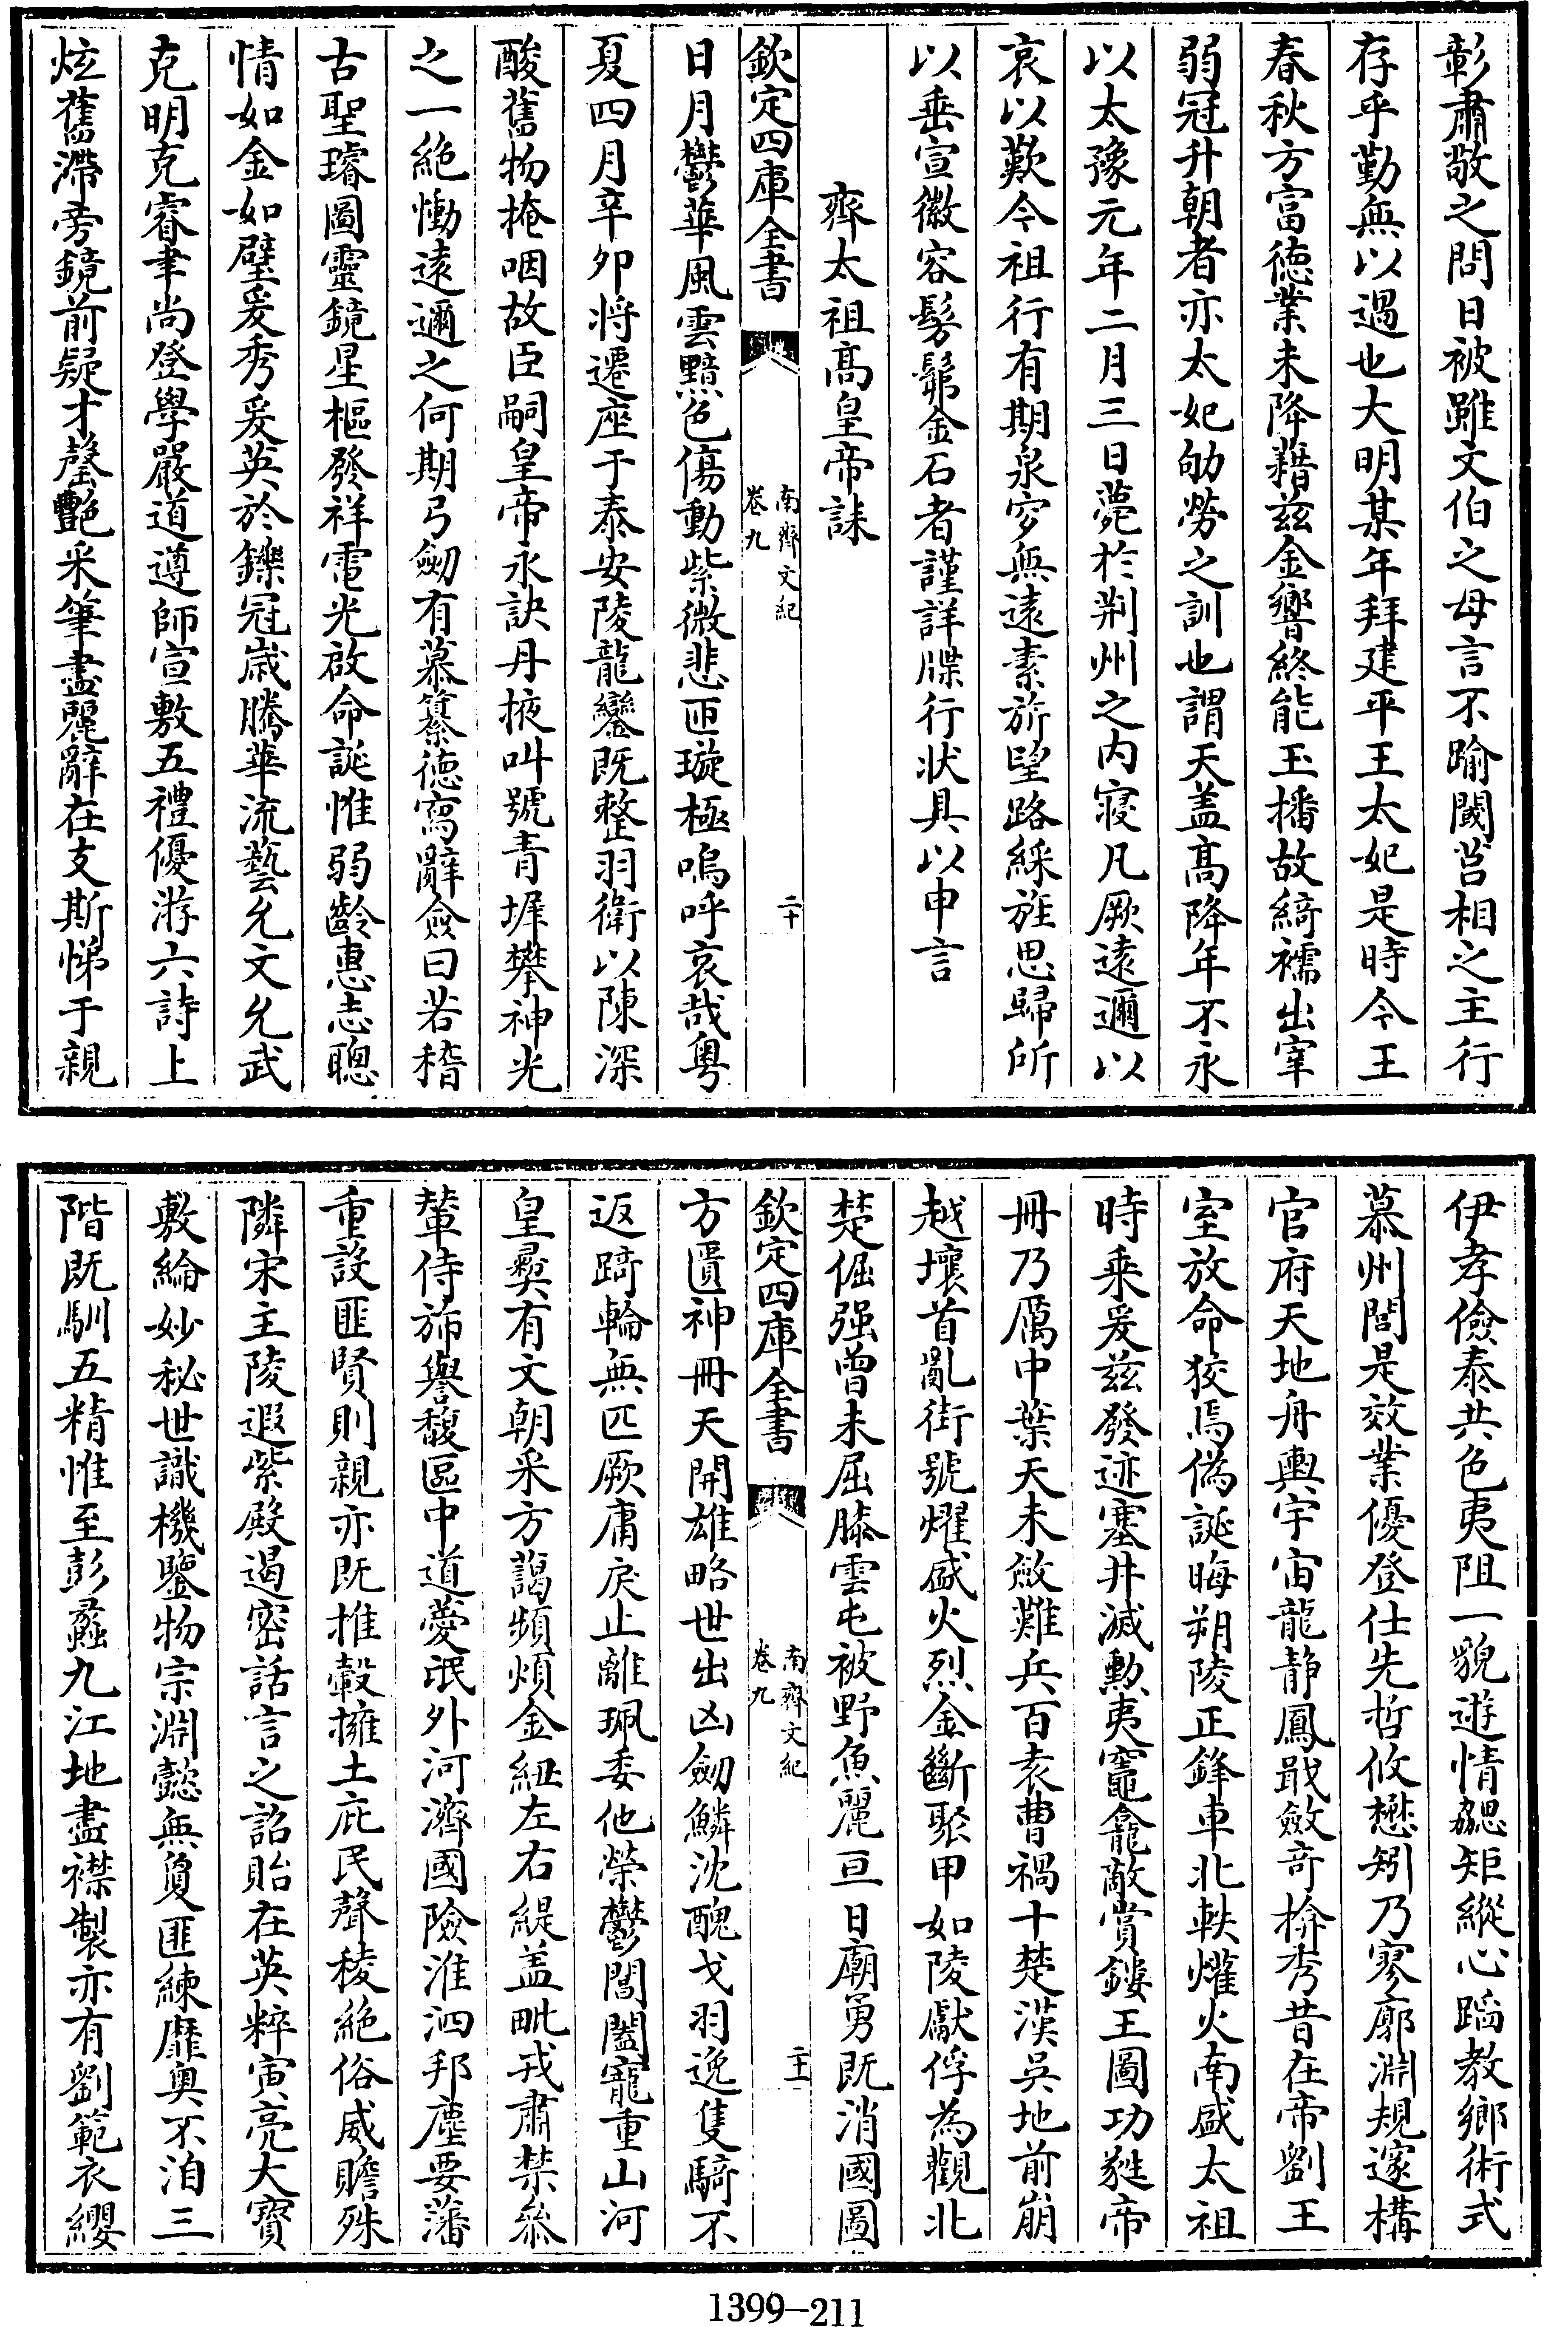 彰肅敬之問日被雖文伯之母言不踰閾莒相之主行
存乎勤無以過也大明某年拜建平王太妃是時今王
春秋方富德業未降藉兹金響終能玉播故綺襦出宰
弱冠升朝者亦太妃劬勞之訓也謂天盖髙降年不永
以太豫元年二月三日薨於荆州之内寝凡厥遠邇以
哀以歎今祖行有期泉穸無遠素旂望路綵旌思歸所
以垂宣徽容髣髴金石者謹詳牒行状具以申言
齊太祖髙皇帝誄
欽定四庫全書
南齊文紀
卷九
二十
日月鬱華風雲黯色傷動紫微悲匝璇極嗚呼哀哉粤
夏四月辛夘将遷座于泰安陵龍鑾既整羽衛以陳深
酸舊物掩咽故臣嗣皇帝永訣丹掖叫號青墀攀神光
之一絶慟遠邇之何期弓劒有慕纂德寫辭僉曰若稽
古聖璿圖靈鏡星樞發祥電光啟命誕惟弱齡惠志聰
情如金如璧爰秀爰英於鑠冠嵗騰華流藝允文允武
克明克睿聿尚登學嚴道遵師宣敷五禮優游六詩上
炫舊滯旁鏡前疑才罄艷采筆盡麗辭在支斯悌于親
伊孝儉泰共色夷阻一貌遊情勰矩縱心蹈教鄉術式
慕州閭是效業優登仕先哲攸懋矧乃寥廓淵規邃構
官府天地舟輿宇宙龍静鳳戢斂竒揜秀昔在帝劉王
室放命狡焉偽誕晦朔陵正鋒車北軼燿火南盛太祖
時乘爰兹發迹塞井滅勲夷竈龕敵賞鏤王圖功甡帝
冊乃厲中葉天未斂難兵百袁曹禍十楚漢吳地前崩
越壤首亂街號燿盛火烈金斷聚甲如陵獻俘為觀北
楚倔强曾未屈膝雲屯被野魚麗亘日廟勇既消國圖
欽定四庫全書
南齊文紀
卷九
二十一
方匱神冊天開雄略世出凶劒鱗沈醜戈羽逸隻騎不
返踦輪無匹厥庸戾止離珮委他榮鬱閶闔寵重山河
皇彛有文朝采方謁頻煩金紐左右緹盖毗戎肅禁叅
輦侍斾譽馥區中道蔓氓外河濟國險淮泗邦塵要藩
重設匪賢則親亦既推轂擁土庇民聲稜絶俗威贍殊
隣宋主陵遐紫殿遏密話言之詔貽在英粹寅亮大寳
敷綸妙秘世識機鑒物宗淵懿無敻匪練靡奥不洎三
階既馴五精惟至彭蠡九江地盡襟製亦有劉範衣纓
1399-211